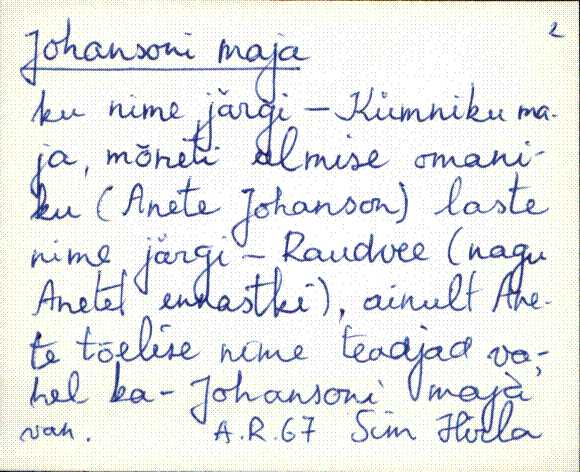 2
Johansoni maja
ku nime järgi – Kümniku ma-
ja, mõneti elmise omani-
ku (Anete Johanson) laste
nime järgi – Raudvee (nagu
Anetel ennastki), ainult Ane-
te tõelise nime teadjad va-
hel ka – Johansoni maja
van. A.R. 67